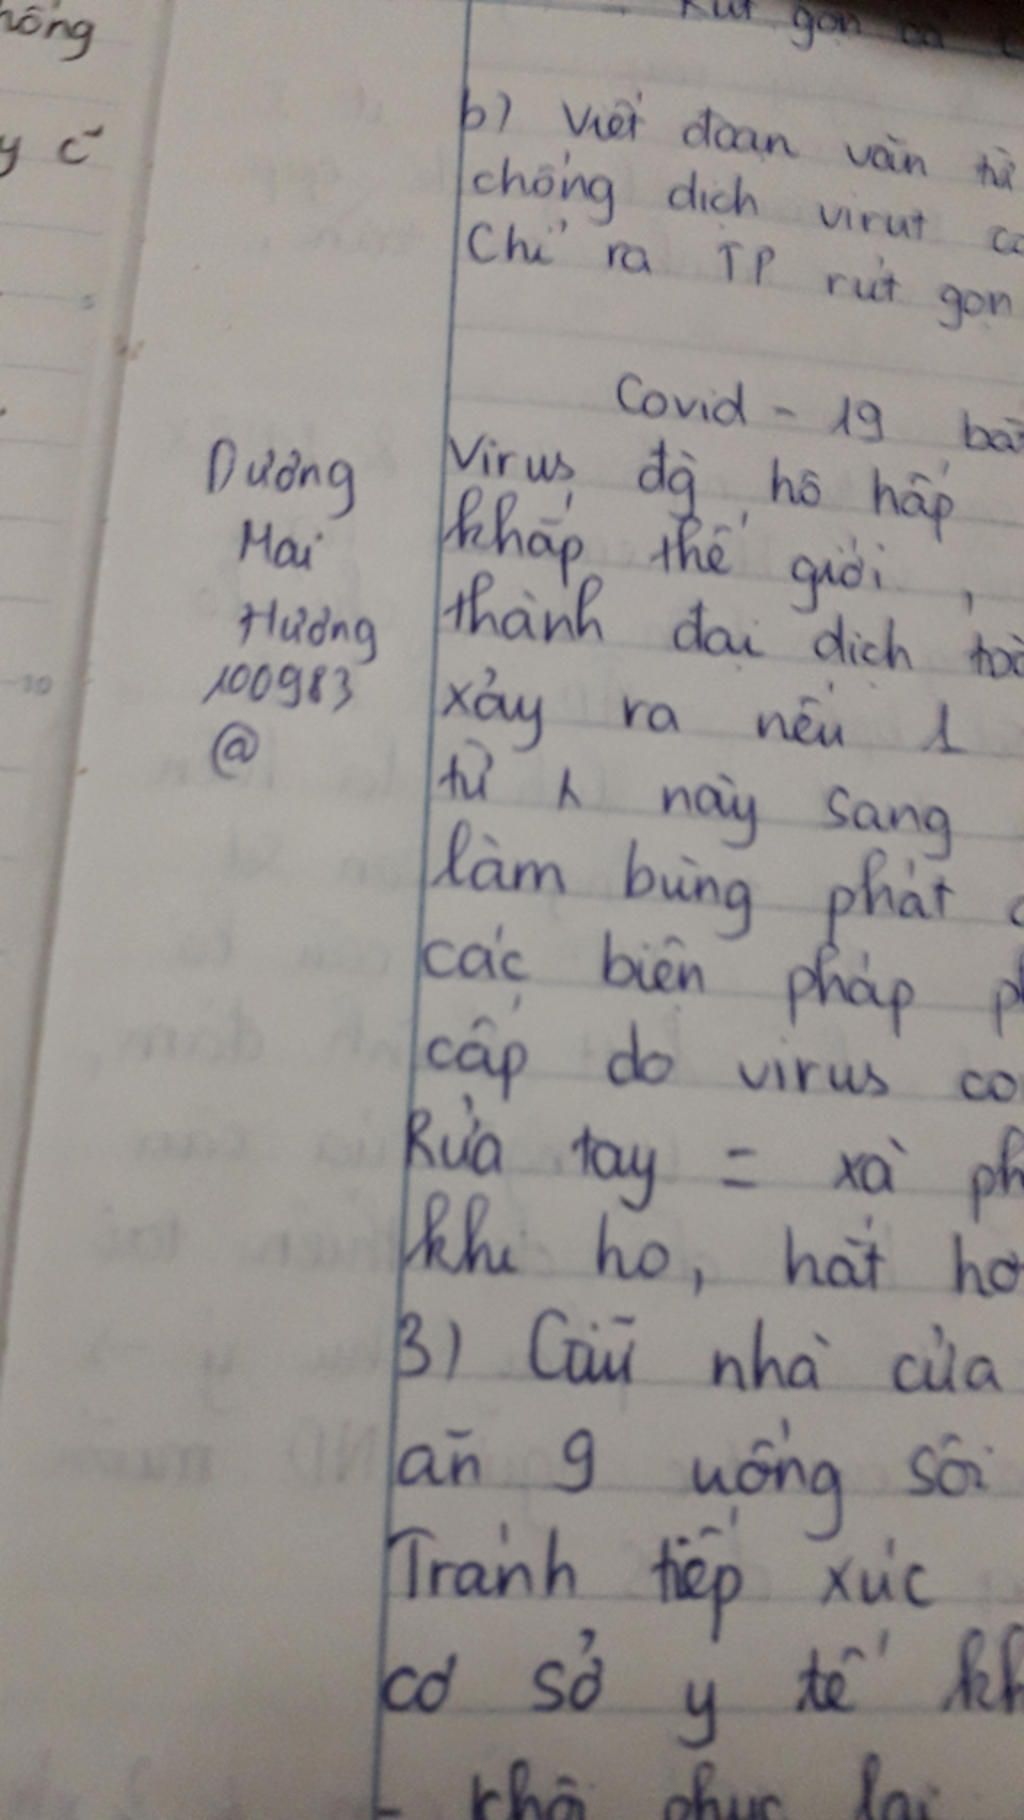 hông
y c
Rút gọn
b) Viết đoạn văn từ
chống dịch virut
Chỉ ra TP rút gọn
Covid - 19
Virus đg hô hấp
khắp thế giới,
thành đại dịch
xảy ra nếu 1
từ
này sang
làm bùng phát
các biện pháp
cấp do virus
Rửa tay = xà
khi ho, hắt
3) Cửa nhà cửa
ăn 9 uống sôi
Tránh tiếp xúc
cơ sở y tế
- khôi phục lại
Dương
Mai
Hương
100983
@